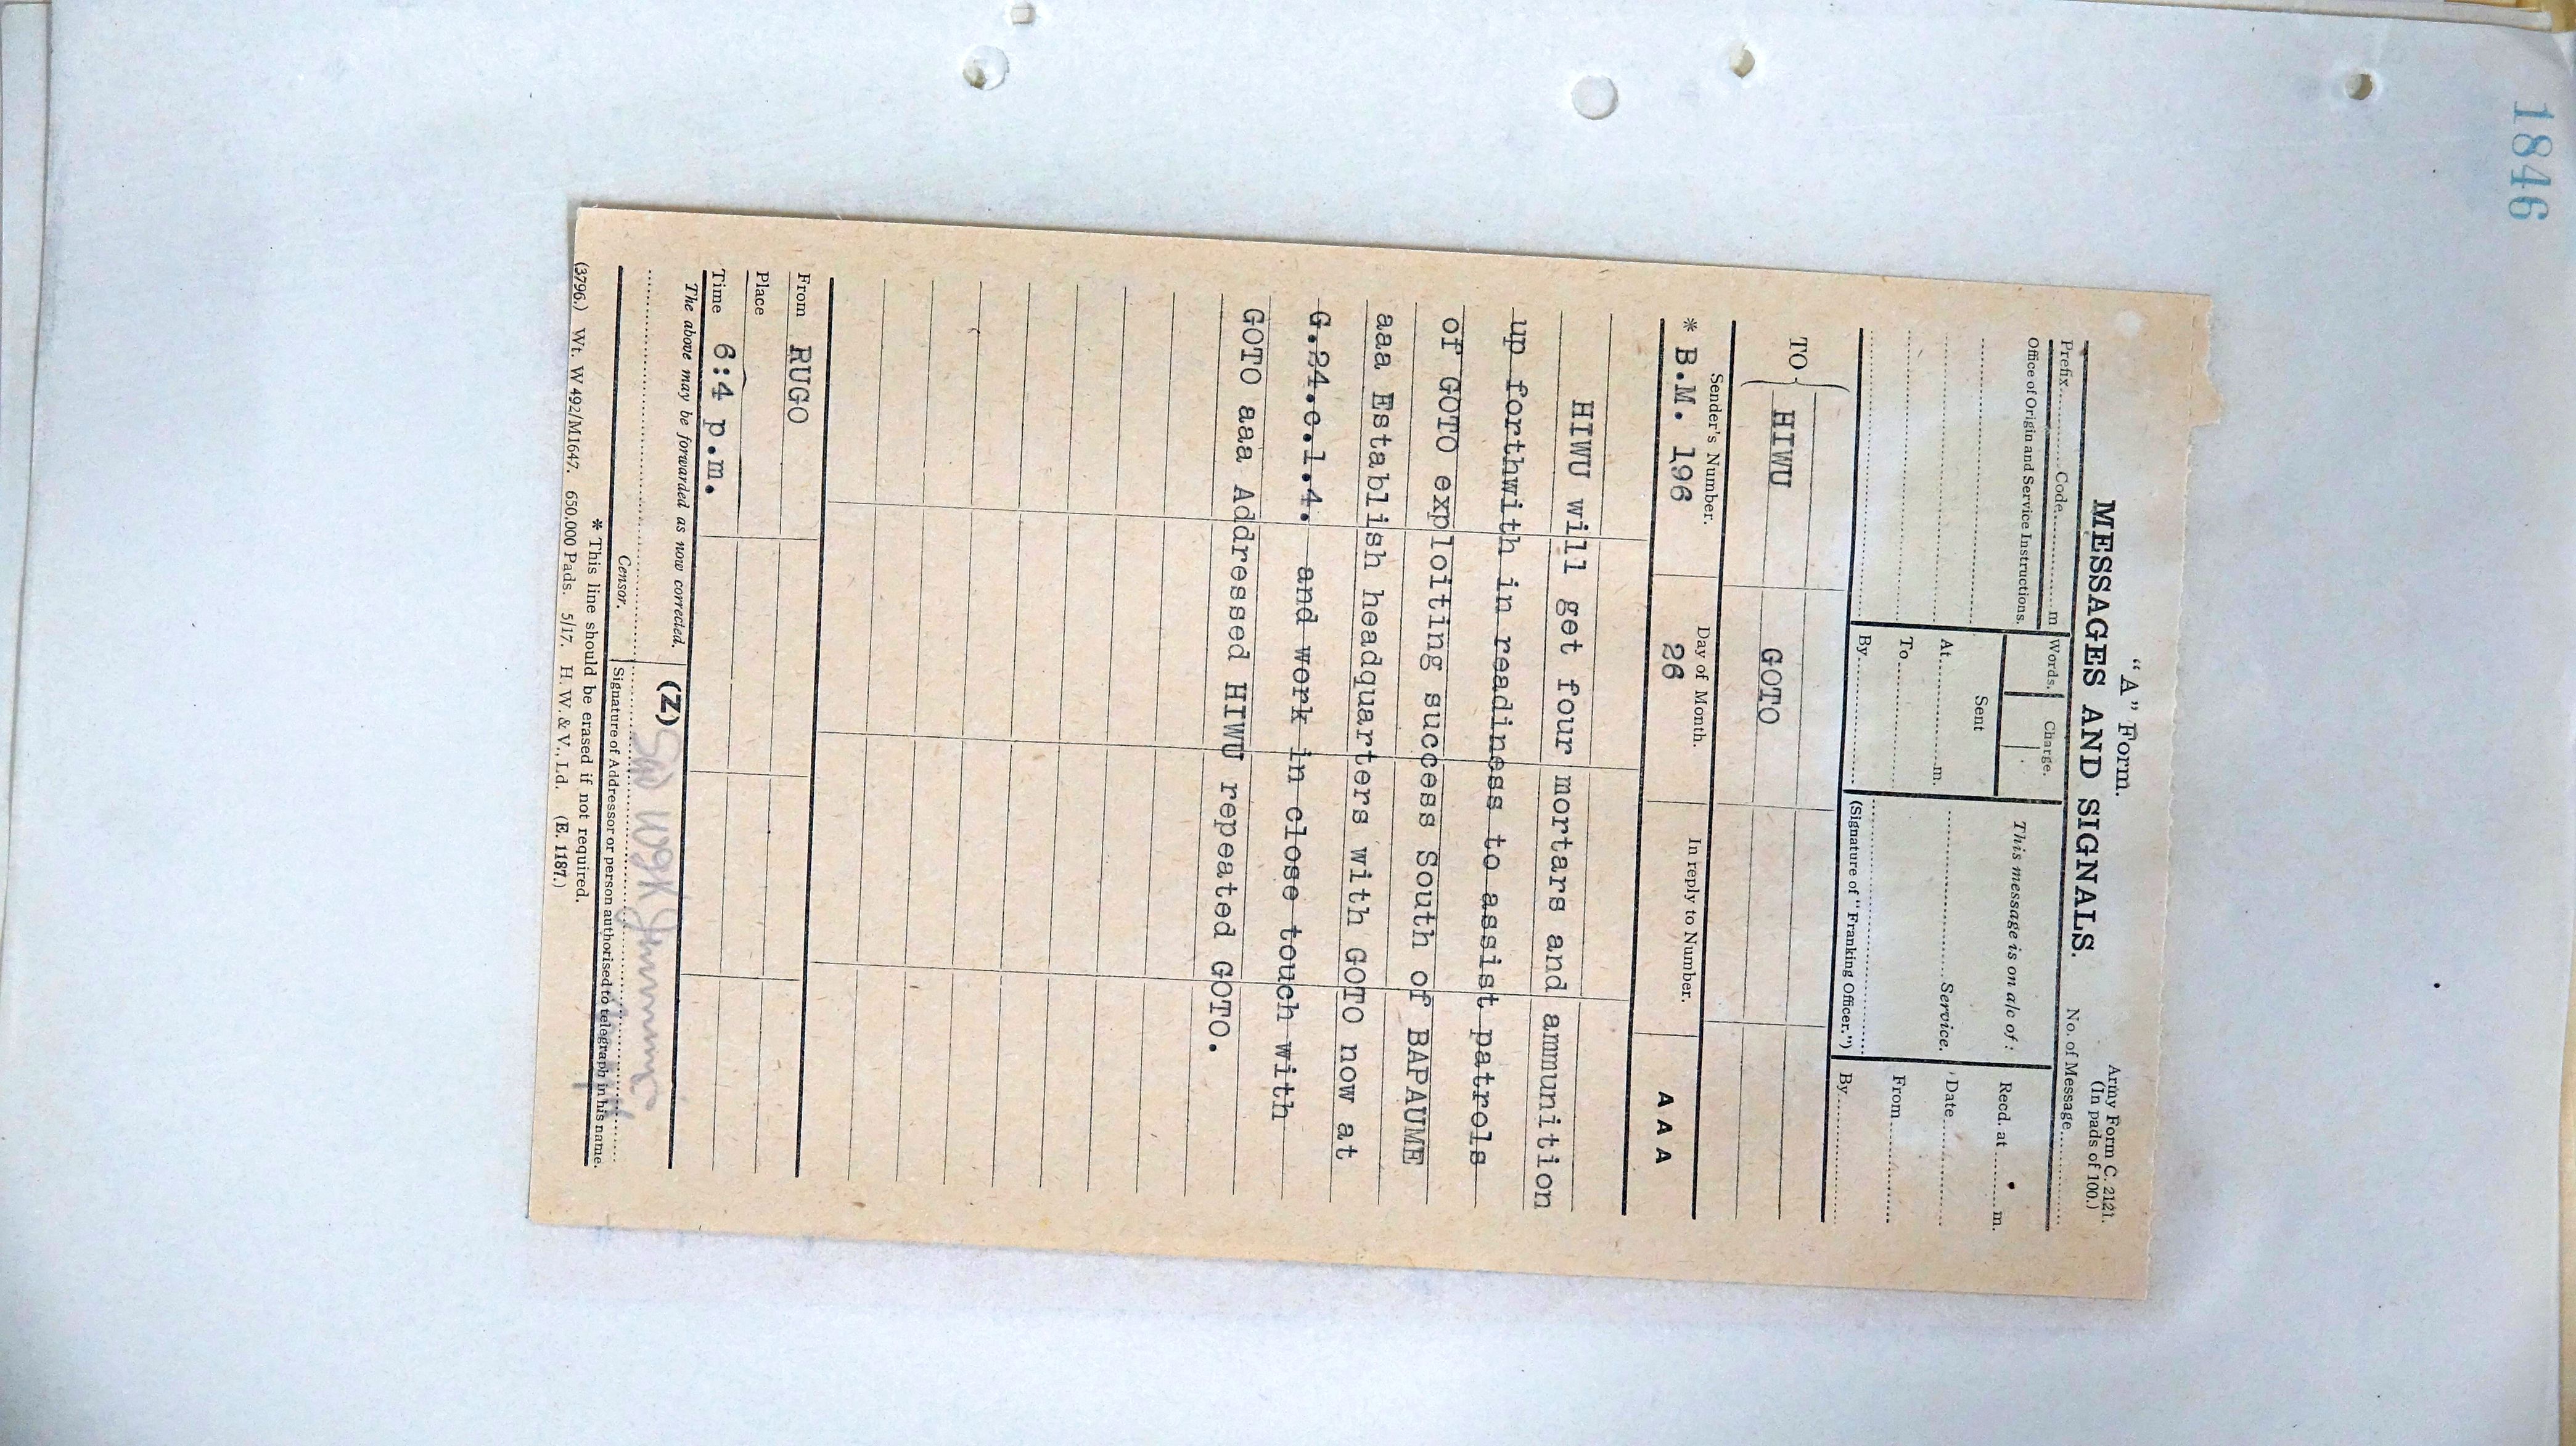 1846
"A" Form.
Army Form C. 2121.
(In pads of 100.)
MESSAGES AND SIGNALS.
No. of Message
Prefix Code m
Words. Charge.
This message is on a/c of:
Recd. at m.
Office of Origin and Service Instructions.
Sent
At m.
Service.
Date
To
From
By
(Signature of "Franking Officer.")
By
TO
HIWU GOTO
Sender's Number. Day of Month. In reply to Number.
* B.M. 196 26 AAA
HIWU will get four mortars and ammunition
up forthwith in readiness to assist patrols
of GOTO exploiting success South of BAPAUME
aaa Establish headquarters with GOTO now at
G.24.c.1.4. and work in close touch with
GOTO aaa Addressed HIWU repeated GOTO.
From RUGO
Place
Time 6:4 p.m.
The above may be forwarded as now corrected. (Z)
Censor. Signature of Addressor or person authorised to telegraph in his name.
* This line should be erased if not required.
(3796.) Wt. W492/M1647. 650,000 Pads. 5/17. H. W. & V., Ld. (E. 1187.)